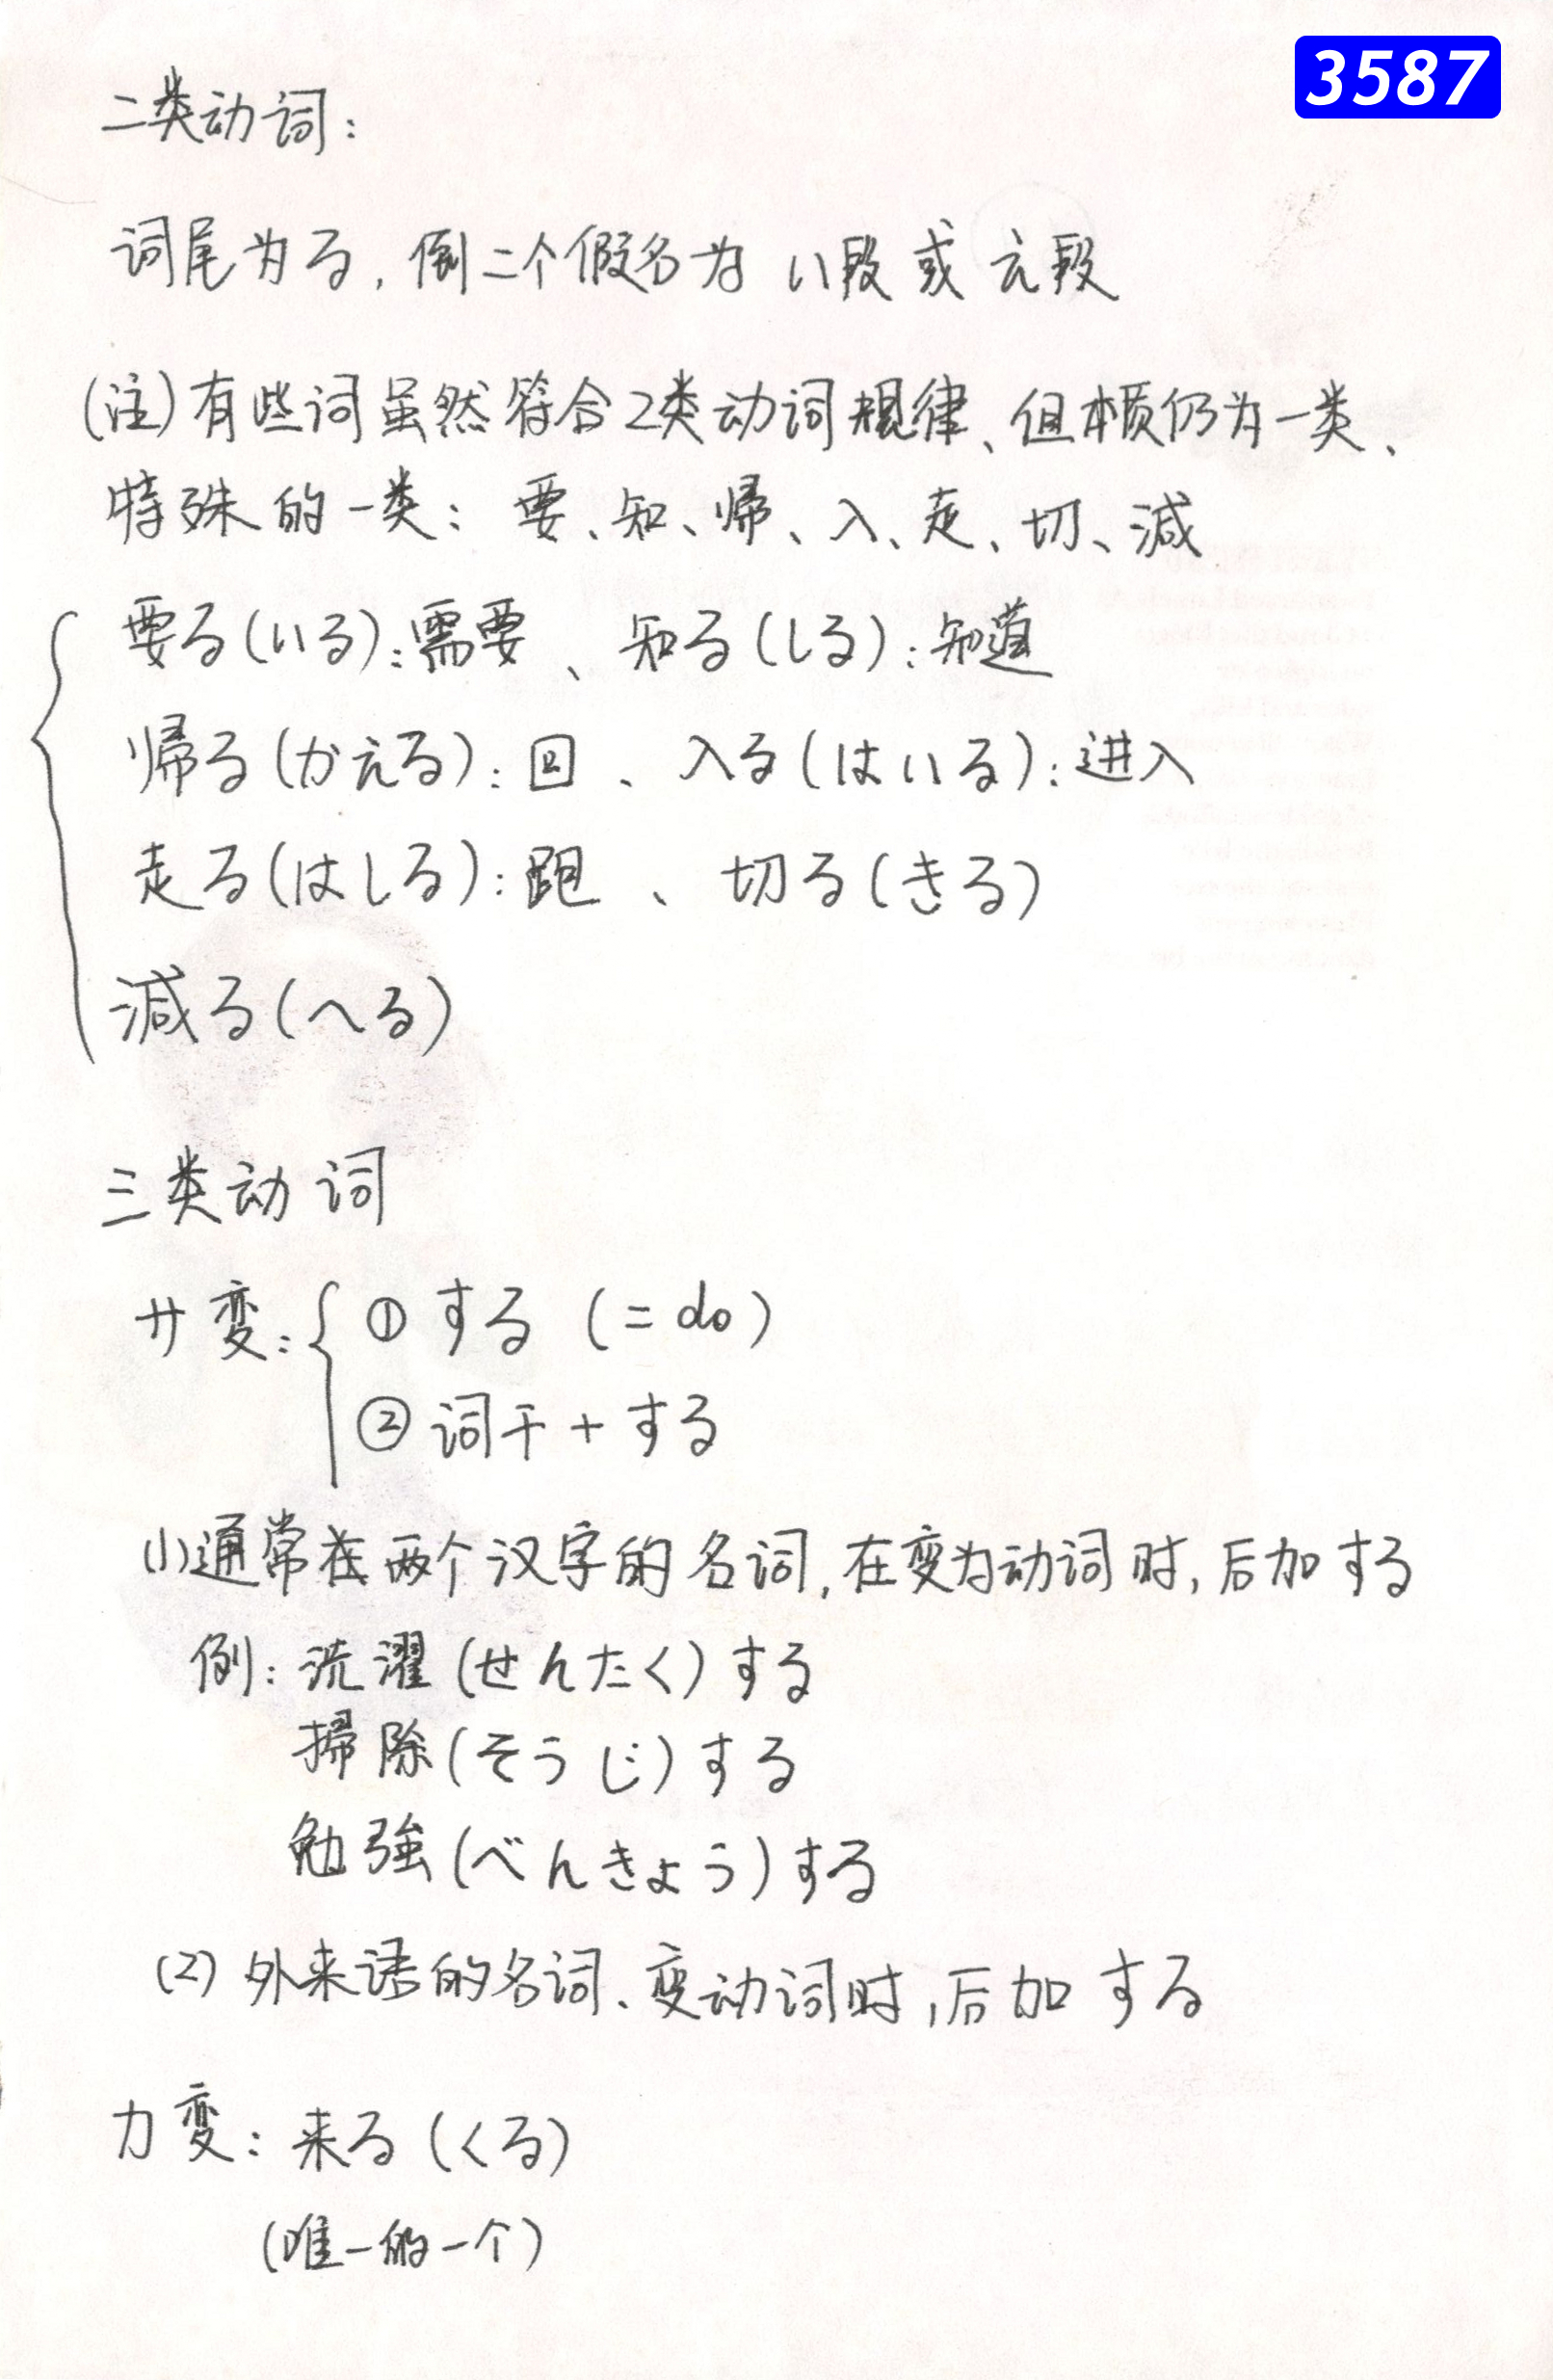 3587
二类动词：
词尾为る，倒二个假名为 い段 或 え段
(注)有些词虽然符合2类动词规律、但本质仍为一类、
特殊的一类：要、知、帰、入、走、切、減
要る(いる)：需要、知る(しる)：知道
帰る(かえる)：回、入る(はいる)：进入
走る(はしる)：跑、切る(きる)
減る(へる)
三类动词
サ変：① する (= do)
② 词干 + する
(1)通常在两个汉字的名词，在变为动词时，后加する
例：洗濯(せんたく)する
掃除(そうじ)する
勉強(べんきょう)する
(2) 外来语的名词、变动词时，后加 する
カ変：来る(くる)
(唯一的一个)